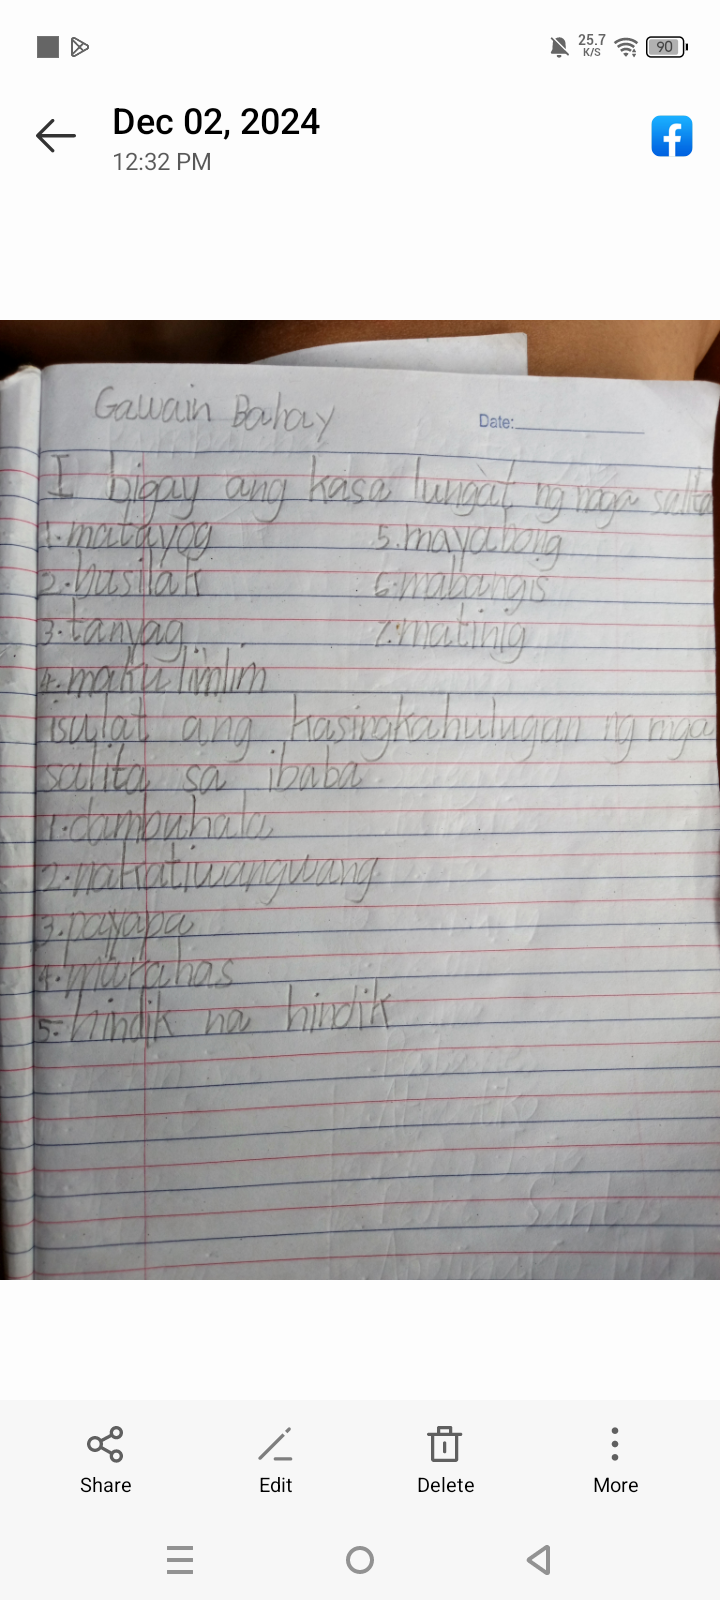 25.7
K/S
90
Dec 02, 2024
12:32 PM
Gawain Bahay
Date:
I bigay ang kasa lungat ng mga salita
1. matayog 5. mayabong
2. busilak 6. mabangis
3. tanyag 7. matinig
4. maku limlim
isulat ang kasingkahulugan ng mga
salita sa ibaba
1. dambuhala
2. nakatiwangwang
3. payapa
4. marahas
5. hindik na hindik
Share Edit Delete More